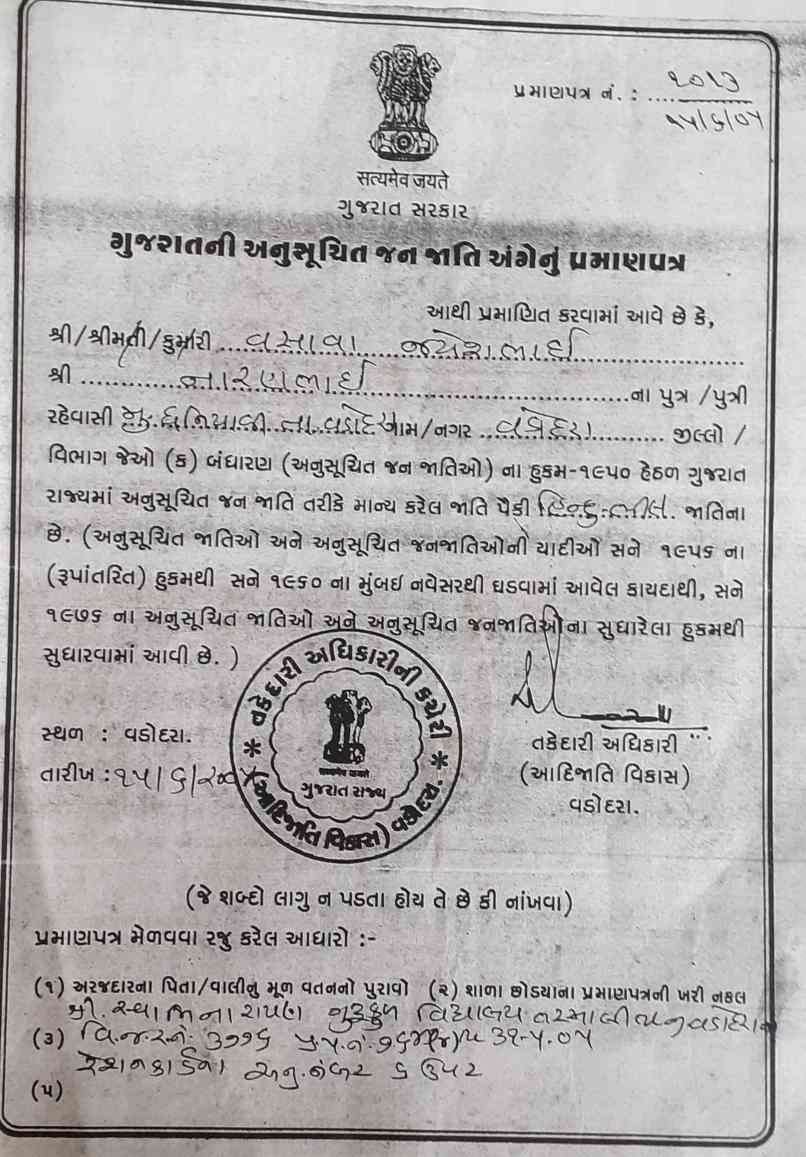 પ્રમાણપત્ર નં. : ૨૦૧૩
૧૫/૬/૦૫
सत्यमेव जयते
ગુજરાત સરકાર
ગુજરાતની અનુસૂચિત જન જાતિ અંગેનું પ્રમાણપત્ર
આથી પ્રમાણિત કરવામાં આવે છે કે,
શ્રી/શ્રીમતી/કુમારી વસાવા જયેશભાઈ
શ્રી નારણભાઈ ના પુત્ર /પુત્રી
રહેવાસી મુ. ધનિયાવી તા વડોદરા ગામ/નગર વડોદરા જીલ્લો /
વિભાગ જેઓ (ક) બંધારણ (અનુસૂચિત જન જાતિઓ) ના હુકમ-૧૯૫૦ હેઠળ ગુજરાત
રાજ્યમાં અનુસૂચિત જન જાતિ તરીકે માન્ય કરેલ જાતિ પૈકી હિન્દુ-ભીલ. જાતિના
છે. (અનુસૂચિત જાતિઓ અને અનુસૂચિત જનજાતિઓની યાદીઓ સને ૧૯૫૬ ના
(રૂપાંતરિત) હુકમથી સને ૧૯૬૦ ના મુંબઈ નવેસરથી ઘડવામાં આવેલ કાયદાથી, સને
૧૯૭૬ ના અનુસૂચિત જાતિઓ અને અનુસૂચિત જનજાતિઓના સુધારેલા હુકમથી
સુધારવામાં આવી છે. )
તકેદારી અધિકારીની કચેરી
ગુજરાત રાજ્ય
(આદિજાતિ વિકાસ) વડોદરા.
સ્થળ : વડોદરા.
તારીખ : ૧૫/૬/૨૦૦૫
તકેદારી અધિકારી
(આદિજાતિ વિકાસ)
વડોદરા.
(જે શબ્દો લાગુ ન પડતા હોય તે છે કી નાંખવા)
પ્રમાણપત્ર મેળવવા રજુ કરેલ આધારો :-
(૧) અરજદારના પિતા/વાલીનું મૂળ વતનનો પુરાવો (૨) શાળા છોડયાના પ્રમાણપત્રની ખરી નકલ
શ્રી. સ્વામિનારાયણ ગુરૂકુળ વિદ્યાલય તરસાલી
(૩) વિ.જ.ર.નં. ૩૭૧૬ પ્ર.પ.નં. ૩૧-૫-૦૫
રેશનકાર્ડના અનુ.નંબર ૬ ઉપર
(૫)